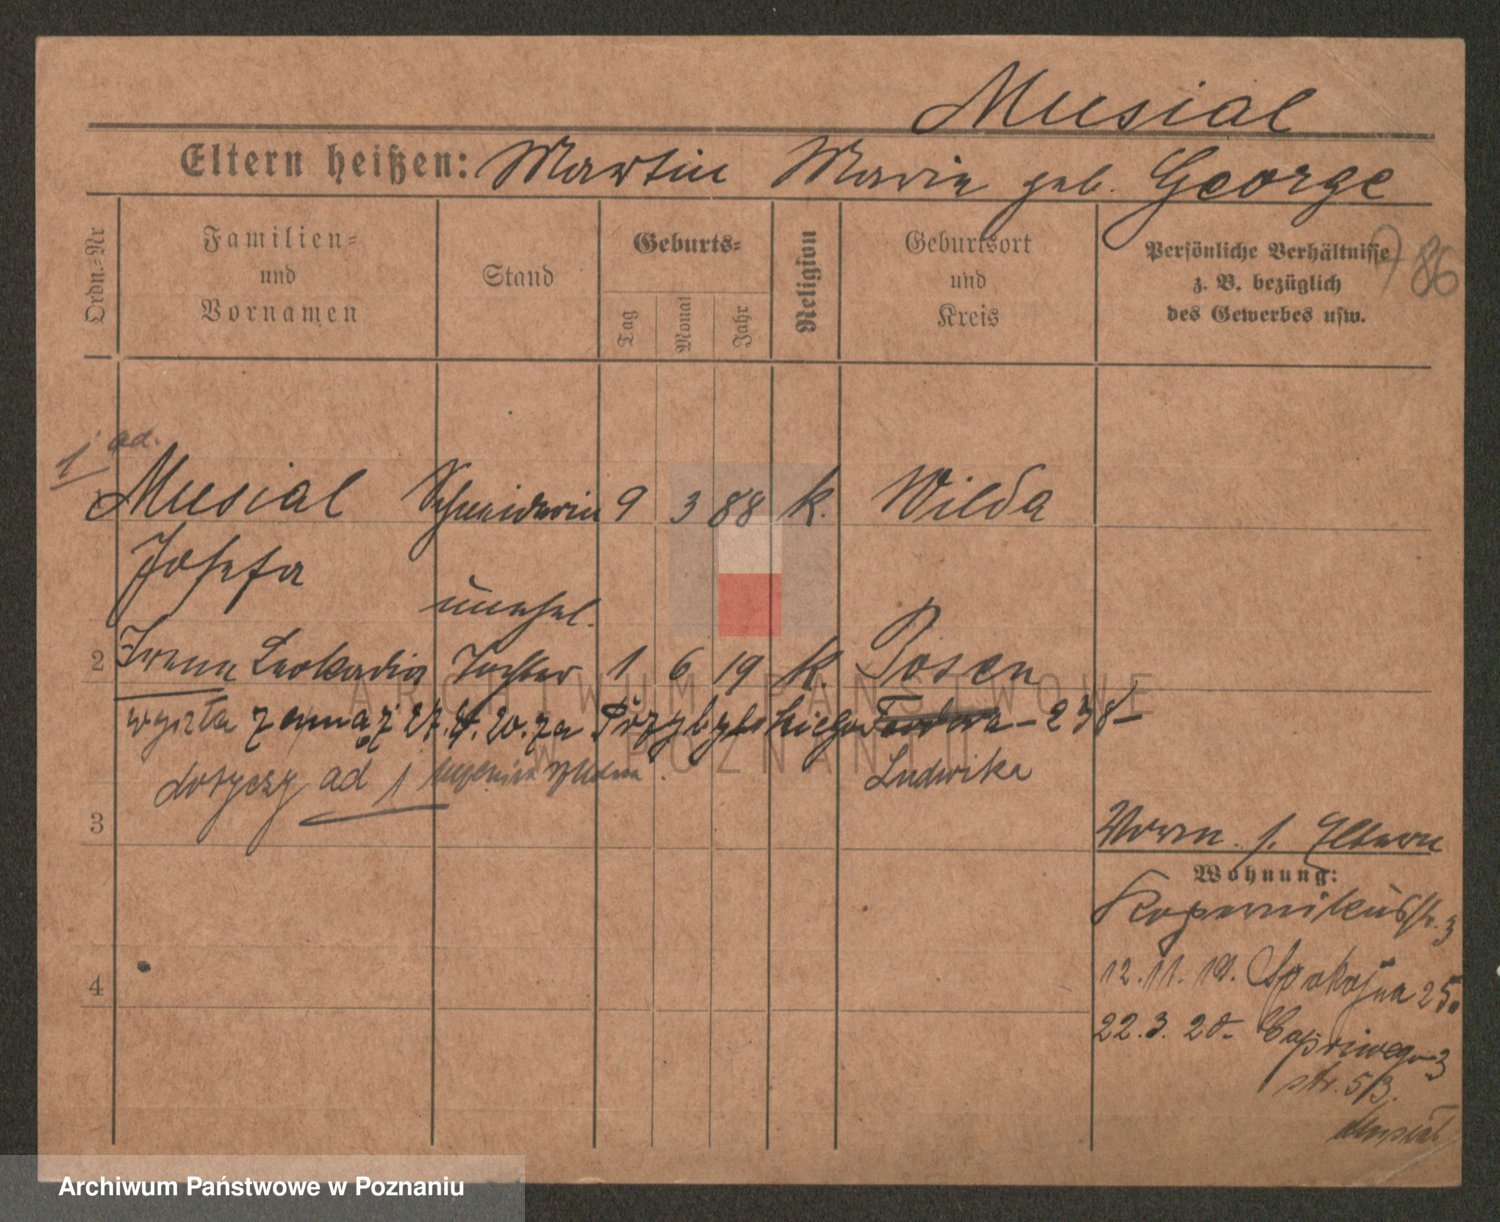 Musial
Eltern heißen: Martin Marie geb. George
Ordn.-Nr
Familien=
und
Vornamen
Stand
Geburts=
Tag
Monat
Jahr
Religion
Geburtsort
und
Kreis
Persönliche Verhältnisse
z. B. bezüglich
des Gewerbes usw.
786
1
1 ad.
Musial Schneiderin 9 3 88 k. Wilda
Josefa
unehel.
2 Irena Leokadia Tochter 1 6 19 k. Posen
wyszła zamąż 27.4.20. za Przybylskiego Teodora - 278 -
dotyczy ad 1 Ludwika
3
Vorm. s. Eltern
Wohnung:
Kopernikusstr. 3
12.11.19. Spokojna 25.
4
22.3.20. Capriwego 3
str. 5/3.
Musiał
ARCHIWUM PAŃSTWOWE
W POZNANIU
Archiwum Państwowe w Poznaniu